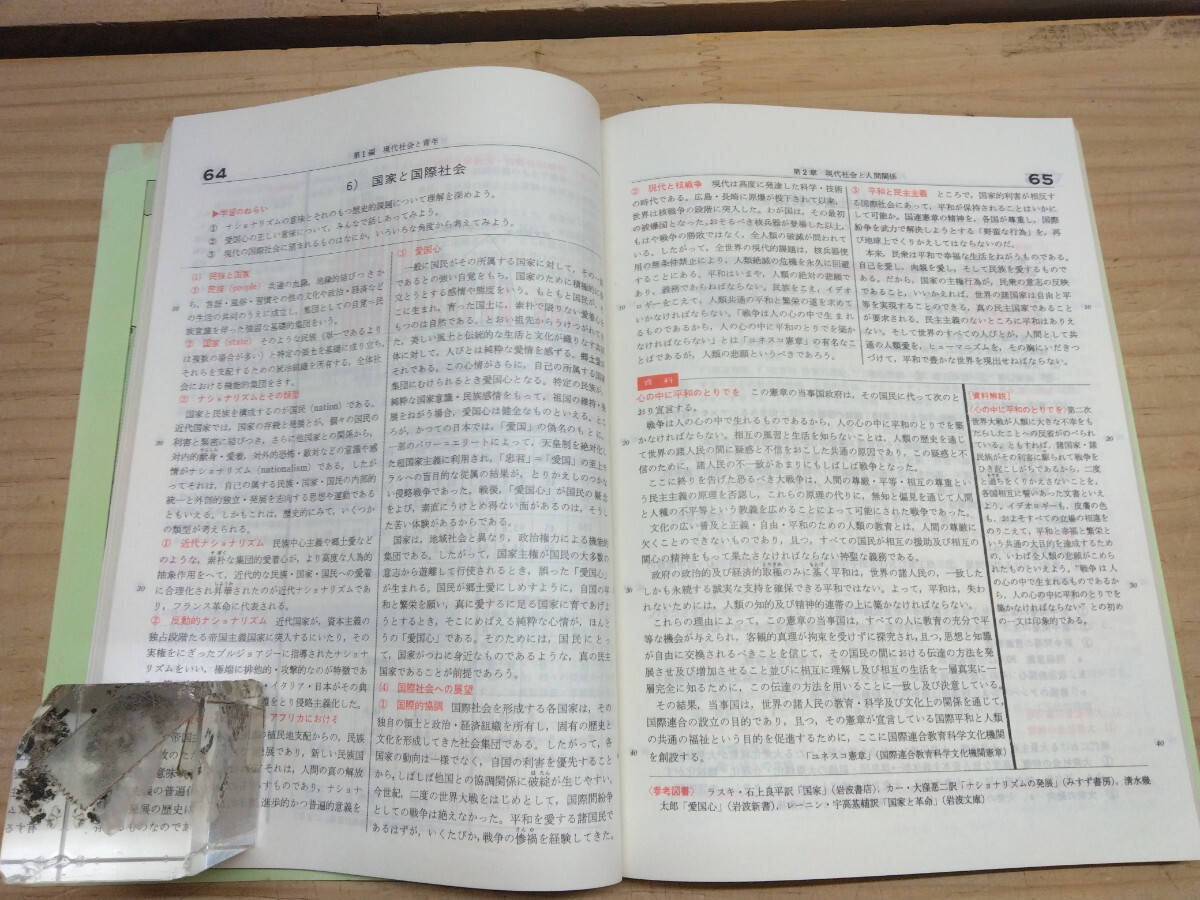 64
第1編 現代社会と青年
6) 国家と国際社会
▶学習のねらい
① ナショナリズムの意味とそれのもつ歴史的課題について理解を深めよう。
② 愛国心の正しい意味について，みんなで話しあってみよう。
③ 現代の国際社会に望まれるものはなにか，いろいろな角度から考えてみよう。
(1) 民族と国家
① 民族(people) 共通の血縁，地縁的結びつきか
ら，言語・風俗・習慣その他の文化や政治・経済など
の生活の共同のうえに成立し，集団としての自覚＝民
族意識を伴った強固な基礎的集団をいう。
② 国家(state) そのような民族(単一であるより
は複数の場合が多い)と特定の領土を基礎に成り立ち，
それらを支配するための統治組織を所有する，全体社
会における機能的集団をさす。
ナショナリズムとその類型
国家と民族を構成するのが国民(nation)である。
近代国家では，国家の存続と発展とが，個々の国民の
利害と緊密に結びつき，さらに他国家との関係から，
対内的献身・愛着，対外的恐怖・敵対などの意識や感
情がナショナリズム(nationalism)である。したが
ってそれは，自己の属する民族・国家・国民の内部的
統一と外部的独立・発展を志向する思想や運動である
ともいえる。しかもこれは，歴史的にみて，いくつか
の類型が考えられる。
① 近代ナショナリズム 民族中心主義や郷土愛など
のような，素朴な集団的愛着心が，より高度な人為的
抽象作用をへて，近代的な民族・国家・国民への愛着
に合理化され昇華されたのが近代ナショナリズムであ
り，フランス革命に代表される。
② 反動的ナショナリズム 近代国家が，資本主義の
独占段階たる帝国主義国家に突入するにいたり，その
実権をにぎったブルジョアジーに指導されたナショナ
リズムをいい，極端に排他的・攻撃的なのが特徴であ
・イタリア・日本がその典
をとり侵略主義化した。
アフリカにおける
の植民地支配からの，民族
展であり，新しい民族国
それは，人間の真の解放
すものであり，ナショナ
進歩的かつ普遍的意義を
③ 愛国心
一般に国民がその所属する国家に対して，その一員
であるとの強い自覚をもち，国家のために積極的に
こに生まれ，育った国土に，素朴で限りない愛着心を
もつのは自然である。とおい祖先からうけつがれてき
た，美しい風土と伝統的な生活と文化が織りなす共同
体に対して，人びとは純粋な愛情を感ずる。郷土愛は
それである。この心情がさらに，自己の所属する国家
集団にむけられるとき愛国心となる。特定の民族が，
純粋な国家意識・民族感情をもって，祖国の維持・発
展をねがう場合，愛国心は健全なものといえる。とこ
ろが，かつての日本では，「愛国」の偽名のもとに，
一部のパワーエリートによって，天皇制を絶対化し
た超国家主義に利用され，「忠君」＝「愛国」の至上モ
ラルへの盲目的な従属の結果が，とりかえしのつかな
い侵略戦争であった。戦後，「愛国心」が国民の疑念
をよび，素直にうけとめ得ない面があるのは，そうし
た苦い体験があるからである。
国家は，地域社会と異なり，政治権力による機能的
集団である。したがって，国家主権が国民の大多数の
意志から遊離して行使されるとき，誤った「愛国心」
が生まれる。国民が郷土愛にしめすように，自国の平
和と繁栄を願い，真に愛するに足る国家に育てあげよ
うとするとき，そこにめばえる純粋な心情が，ほんと
うの「愛国心」である。そのためには，国民にとっ
て，国家がつねに身近なものであるような，真の民主
国家であることが前提であろう。
(4) 国際社会への展望
① 国際的協調 国際社会を形成する各国家は，その
独自の領土と政治・経済組織を所有し，固有の歴史と
文化を形成してきた社会集団である。したがって，各
国家の動向は一様でなく，自国の利害を優先すること
から，しばしば他国との協調関係に破綻が生じやすい。
今世紀，二度の世界大戦をはじめとして，国際間紛争
としての戦争は絶えなかった。平和を愛する諸国民で
あるはずが，いくたびか，戦争の惨禍を経験してきた。
第2章 現代社会と人間関係
65
② 現代と核戦争 現代は高度に発達した科学・技術
の時代である。広島・長崎に原爆が投下されて以来，
世界は核戦争の段階に突入した。わが国は，その最初
の被爆国となった。おそるべき核兵器が登場した以上，
もはや戦争の勝敗ではなく，全人類の破滅が問われて
いる。したがって，全世界の現代的課題は，核兵器使
用の無条件禁止により，人類絶滅の危機を永久に回避
することにある。平和はいまや，人類の絶対の悲願で
あり，義務でもあらねばならない。民族をこえ，イデオ
ロギーをこえて，人類共通の平和と繁栄の道を求めて
いかなければならない。「戦争は人の心の中で生まれ
るものであるから，人の心の中に平和のとりでを築か
なければならない」とは「ユネスコ憲章」の有名なこ
とばであるが，人類の悲願というべきであろう。
③ 平和と民主主義 ところで，国家的利害が相反す
る国際社会にあって，平和が保持されることはいかに
して可能か。国連憲章の精神を，各国が尊重し，国際
紛争を武力で解決しようとする「野蛮な行為」を，再
び地球上でくりかえしてはならないのだ。
本来，民衆は平和で幸福な生活をねがうものである。
自己を愛し，肉親を愛し，そして民族を愛するもので
ある。だから，国家の主権行為が，民衆の意志の反映
であること，いいかえれば，世界の諸国家は自由と平
等を実現することのできる，真の民主国家であること
が要求される。民主主義のないところに平和はありえ
ない。そして世界のすべての人びとが，人間として共
通の人類愛を，ヒューマニズムを，その胸にいだきつ
づけて，平和で豊かな世界を現出せねばならない。
資料
心の中に平和のとりでを この憲章の当事国政府は，その国民に代って次のと
おり宣言する。
戦争は人の心の中で生れるものであるから，人の心の中に平和のとりでを築
かなければならない。相互の風習と生活を知らないことは，人類の歴史を通じ
て世界の諸人民の間に疑惑と不信をおこした共通の原因であり，この疑惑と不
信のために，諸人民の不一致があまりにもしばしば戦争となった。
ここに終りを告げた恐るべき大戦争は，人間の尊厳・平等・相互の尊重とい
う民主主義の原理を否認し，これらの原理の代りに，無知と偏見を通じて人間
と人種の不平等という教義を広めることによって可能にされた戦争であった。
文化の広い普及と正義・自由・平和のための人類の教育とは，人間の尊厳に
欠くことのできないものであり，且つ，すべての国民が相互の援助及び相互の
関心の精神をもって果たさなければならない神聖な義務である。
政府の政治的及び経済的取極のみに基く平和は，世界の諸人民の，一致した
しかも永続する誠実な支持を確保できる平和ではない。よって，平和は，失わ
れないためには，人類の知的及び精神的連帯の上に築かなければならない。
これらの理由によって，この憲章の当事国は，すべての人に教育の充分で平
等な機会が与えられ，客観的真理が拘束を受けずに探究され，且つ，思想と知識
が自由に交換されるべきことを信じて，その国民の間における伝達の方法を発
展させ及び増加させること並びに相互に理解し及び相互の生活を一層真実に一
層完全に知るために，この伝達の方法を用いることに一致し及び決意している。
その結果，当事国は，世界の諸人民の教育・科学及び文化上の関係を通じて，
国際連合の設立の目的であり，且つ，その憲章が宣言している国際平和と人類
の共通の福祉という目的を促進するために，ここに国際連合教育科学文化機関
を創設する。 「ユネスコ憲章」(国際連合教育科学文化機関憲章)
〔資料解説〕
〈心の中に平和のとりでを〉 第二次
世界大戦が人類に大きな不幸をも
たらしたことへの反省がのべられ
ている。ともすれば，諸国家・諸
民族がその利害に駆られて戦争を
ひき起こしがちであるから，二度
と過ちをくりかえさないことを，
各国相互に誓いあった文書といえ
よう。イデオロギーも，皮膚の色
も，およそすべての立場の相違を
のりこえて，平和と幸福と繁栄と
いう共通の大目的を達成するため
の，いわば全人類の悲願がこめら
れたものといえよう。“戦争は人
の心の中で生まれるものであるか
ら，人の心の中に平和のとりでを
築かなければならない”との初め
の一文は印象的である。
〈参考図書〉 ラスキ・石上良平訳「国家」(岩波書店)，カー・大窪愿二訳「ナショナリズムの発展」(みすず書房)，清水幾
太郎「愛国心」(岩波新書)，レーニン・宇高基輔訳「国家と革命」(岩波文庫)